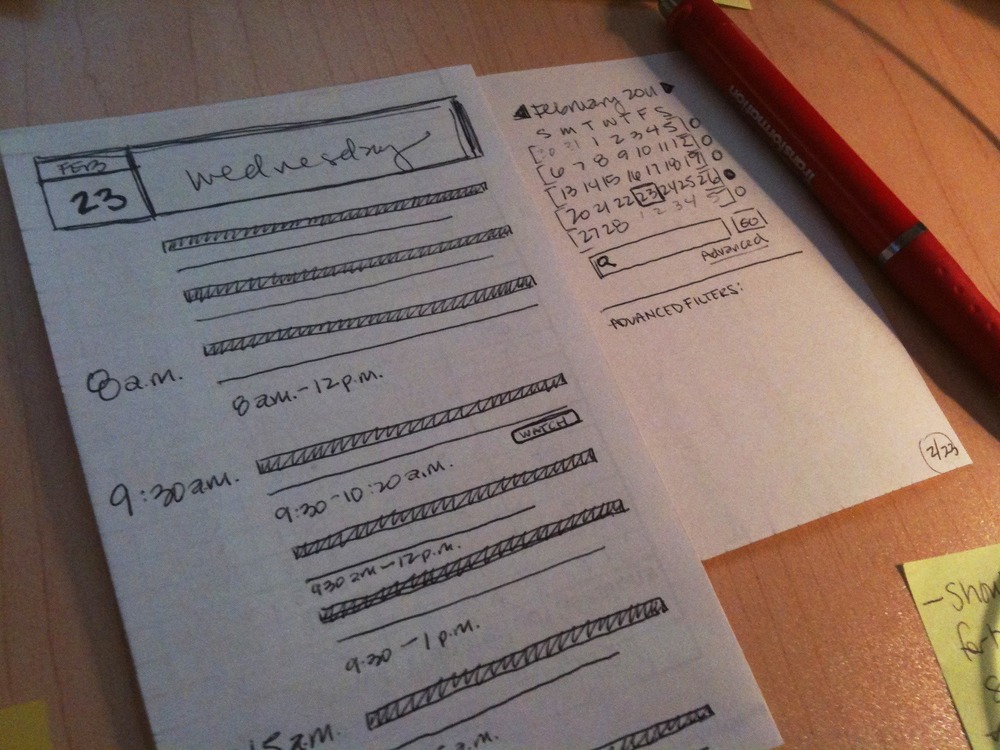 FEB
23
wednesday
8 a.m.
8 a.m. - 12 p.m.
WATCH
9:30 a.m.
9:30 - 10:20 a.m.
930 am - 12 p.m.
9:30 - 1 p.m.
5 a.m.
5 a.m.
February 2011
S M T W T F S
30 31 1 2 3 4 5
6 7 8 9 10 11 12
13 14 15 16 17 18 19
20 21 22 23 24 25 26
27 28 1 2 3 4 5
GO
Advanced
ADVANCED FILTERS:
2/23
Transformation
- Show
for